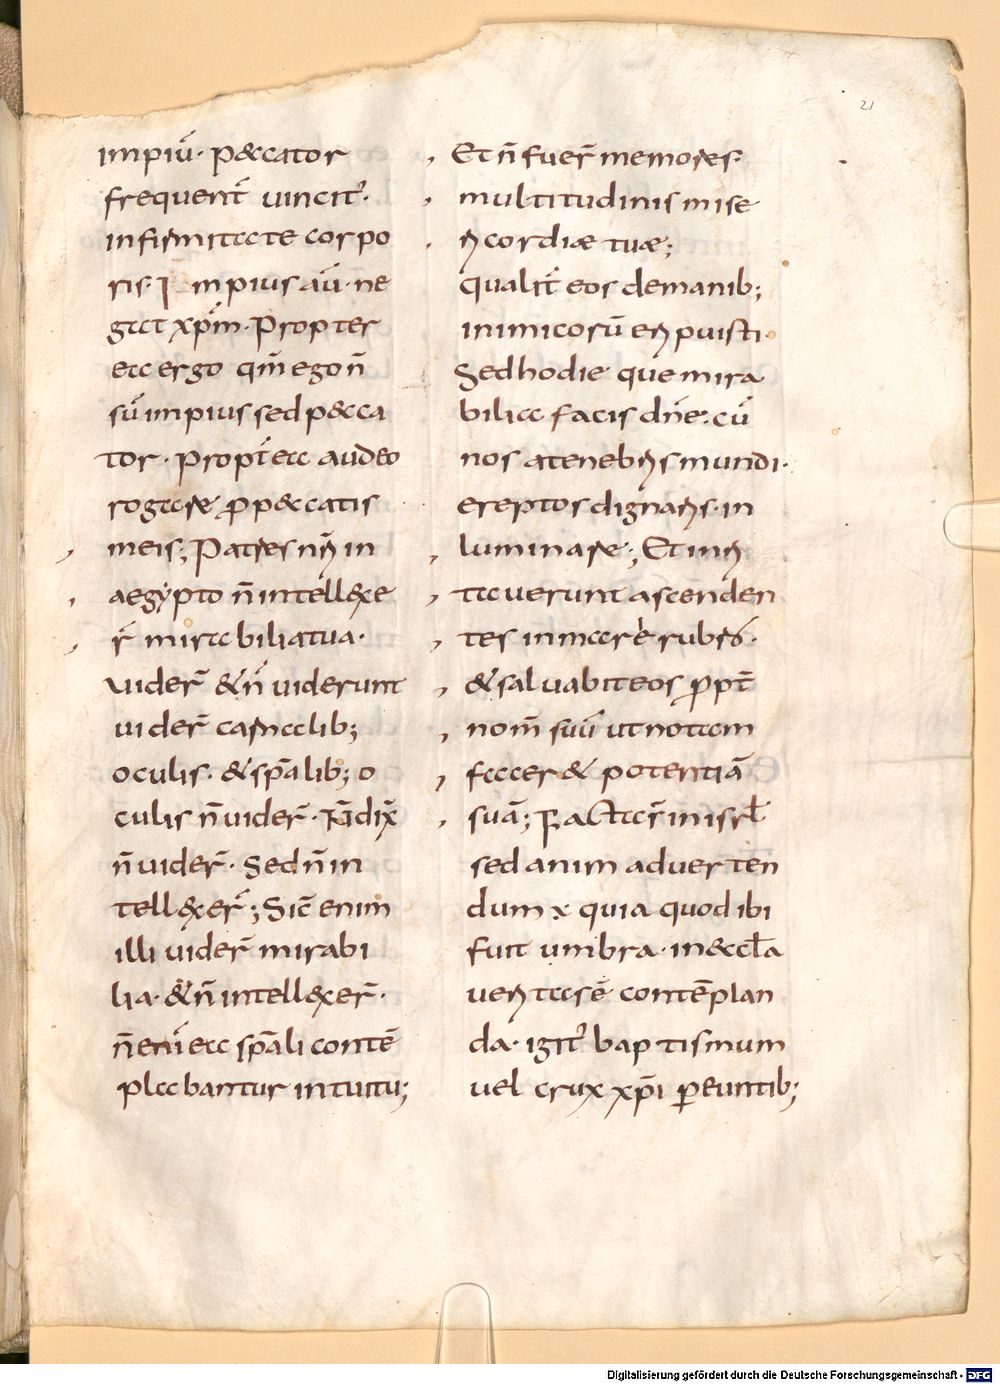 21
impiū· p&ccator
frequent̄ uincit᷒·
infirmitate corpo
ris· Impius aū· ne
gat xp̄m· Propter
ea ergo qm̄ ego n̄
sū impius sed p&cca
tor· propt̄ea audeo
rogare ꝓ p&ccatis
meis; Patres nr̄i in
aegypto n̄ intell&xe
r̄ mirabilia tua·
uider̄ & n̄ uiderunt
uider̄ carnalib;
oculis· & sp̄alib; o
culis n̄ uider̄·
n̄ uider̄· Sed n̄ in
tell&xer̄; Sic̄ enim
illi uider̄ mirabi
lia· & n̄ intell&xer̄·
n̄ enī ea sp̄ali contē
plabantur intuitu;
Et n̄ fuer̄ memores·
multitudinis mise
ricordiæ tuæ;
qualit̄ eos demanib;
inimicorū eripuisti·
Sed hodie que mira
bilia facis dn̄e· cū
nos atenebris mundi·
ereptos dignaris· in
luminare; Et inri
tauerunt ascenden
tes in mare rubrū·
& saluabit eos ꝓpt̄
nom̄ suū ut notam
facer& potentiā
suā; Facta sr̄ in isrl̄
sed anim aduerten
dum x quia quod ibi
fuit umbra· in &ccl̄a
ueritas ē contēplan
da· igit᷒ baptismum
uel crux xp̄i ꝑeuntib;
Digitalisierung gefördert durch die Deutsche Forschungsgemeinschaft - DFG